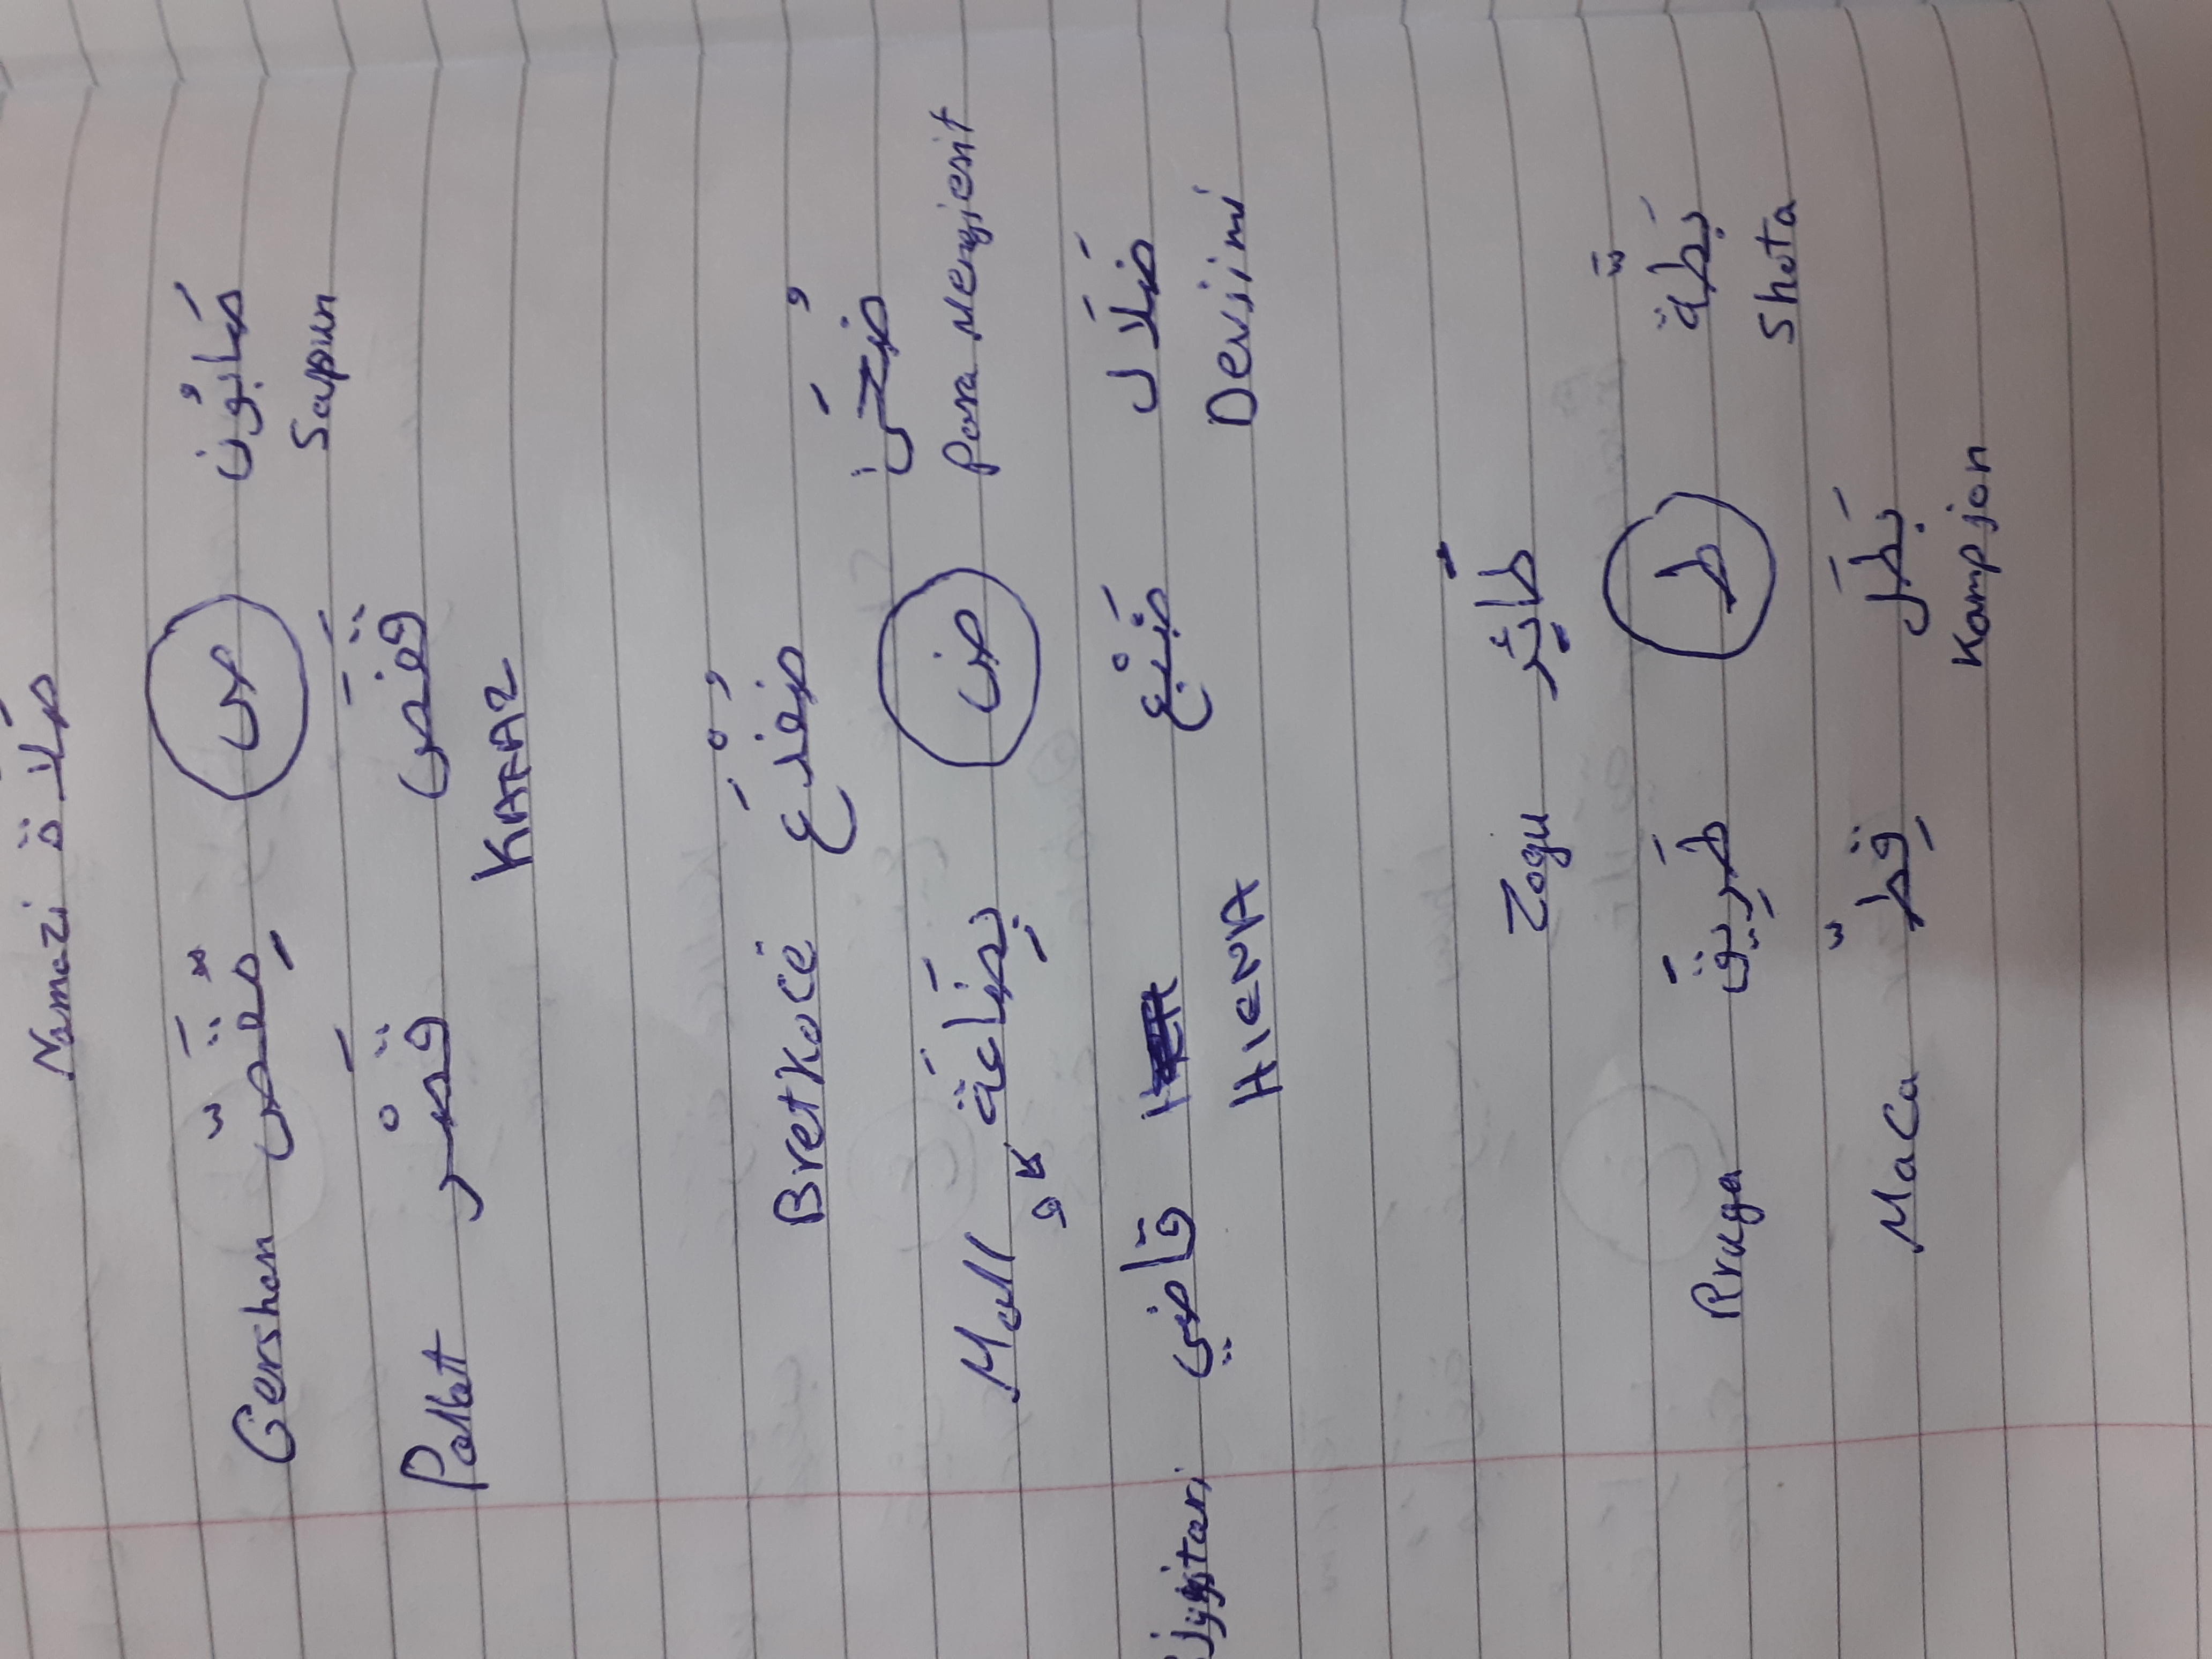 Namazi صَلَاة
Gershan مِقَصّ ص صَابُون
Sapun
Pallatt قَصْر قَفَص
KAFAZ
Bretkocë ضِفْدَع ضُحَى
Mall بِضَاعَة ض Para Mengjesit
قَاضِي ضَبْع ضَلَال
HIENA Devijimi
Zogu طَائِر
Rruga طَرِيق ط بَطَّة
Shota
Maca قِطّ بَطَل
Kampjon